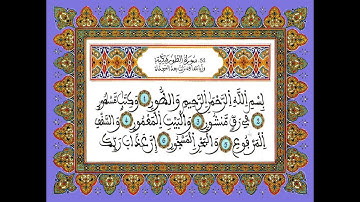 سورة الطور مكية
بِسْمِ اللَّهِ الرَّحْمٰنِ الرَّحِيمِ وَالطُّورِ ١ وَكِتَابٍ مَسْطُورٍ ٢
فِي رَقٍّ مَنْشُورٍ ٣ وَالْبَيْتِ الْمَعْمُورِ ٤ وَالسَّقْفِ
الْمَرْفُوعِ ٥ وَالْبَحْرِ الْمَسْجُورِ ٦ إِنَّ عَذَابَ رَبِّكَ